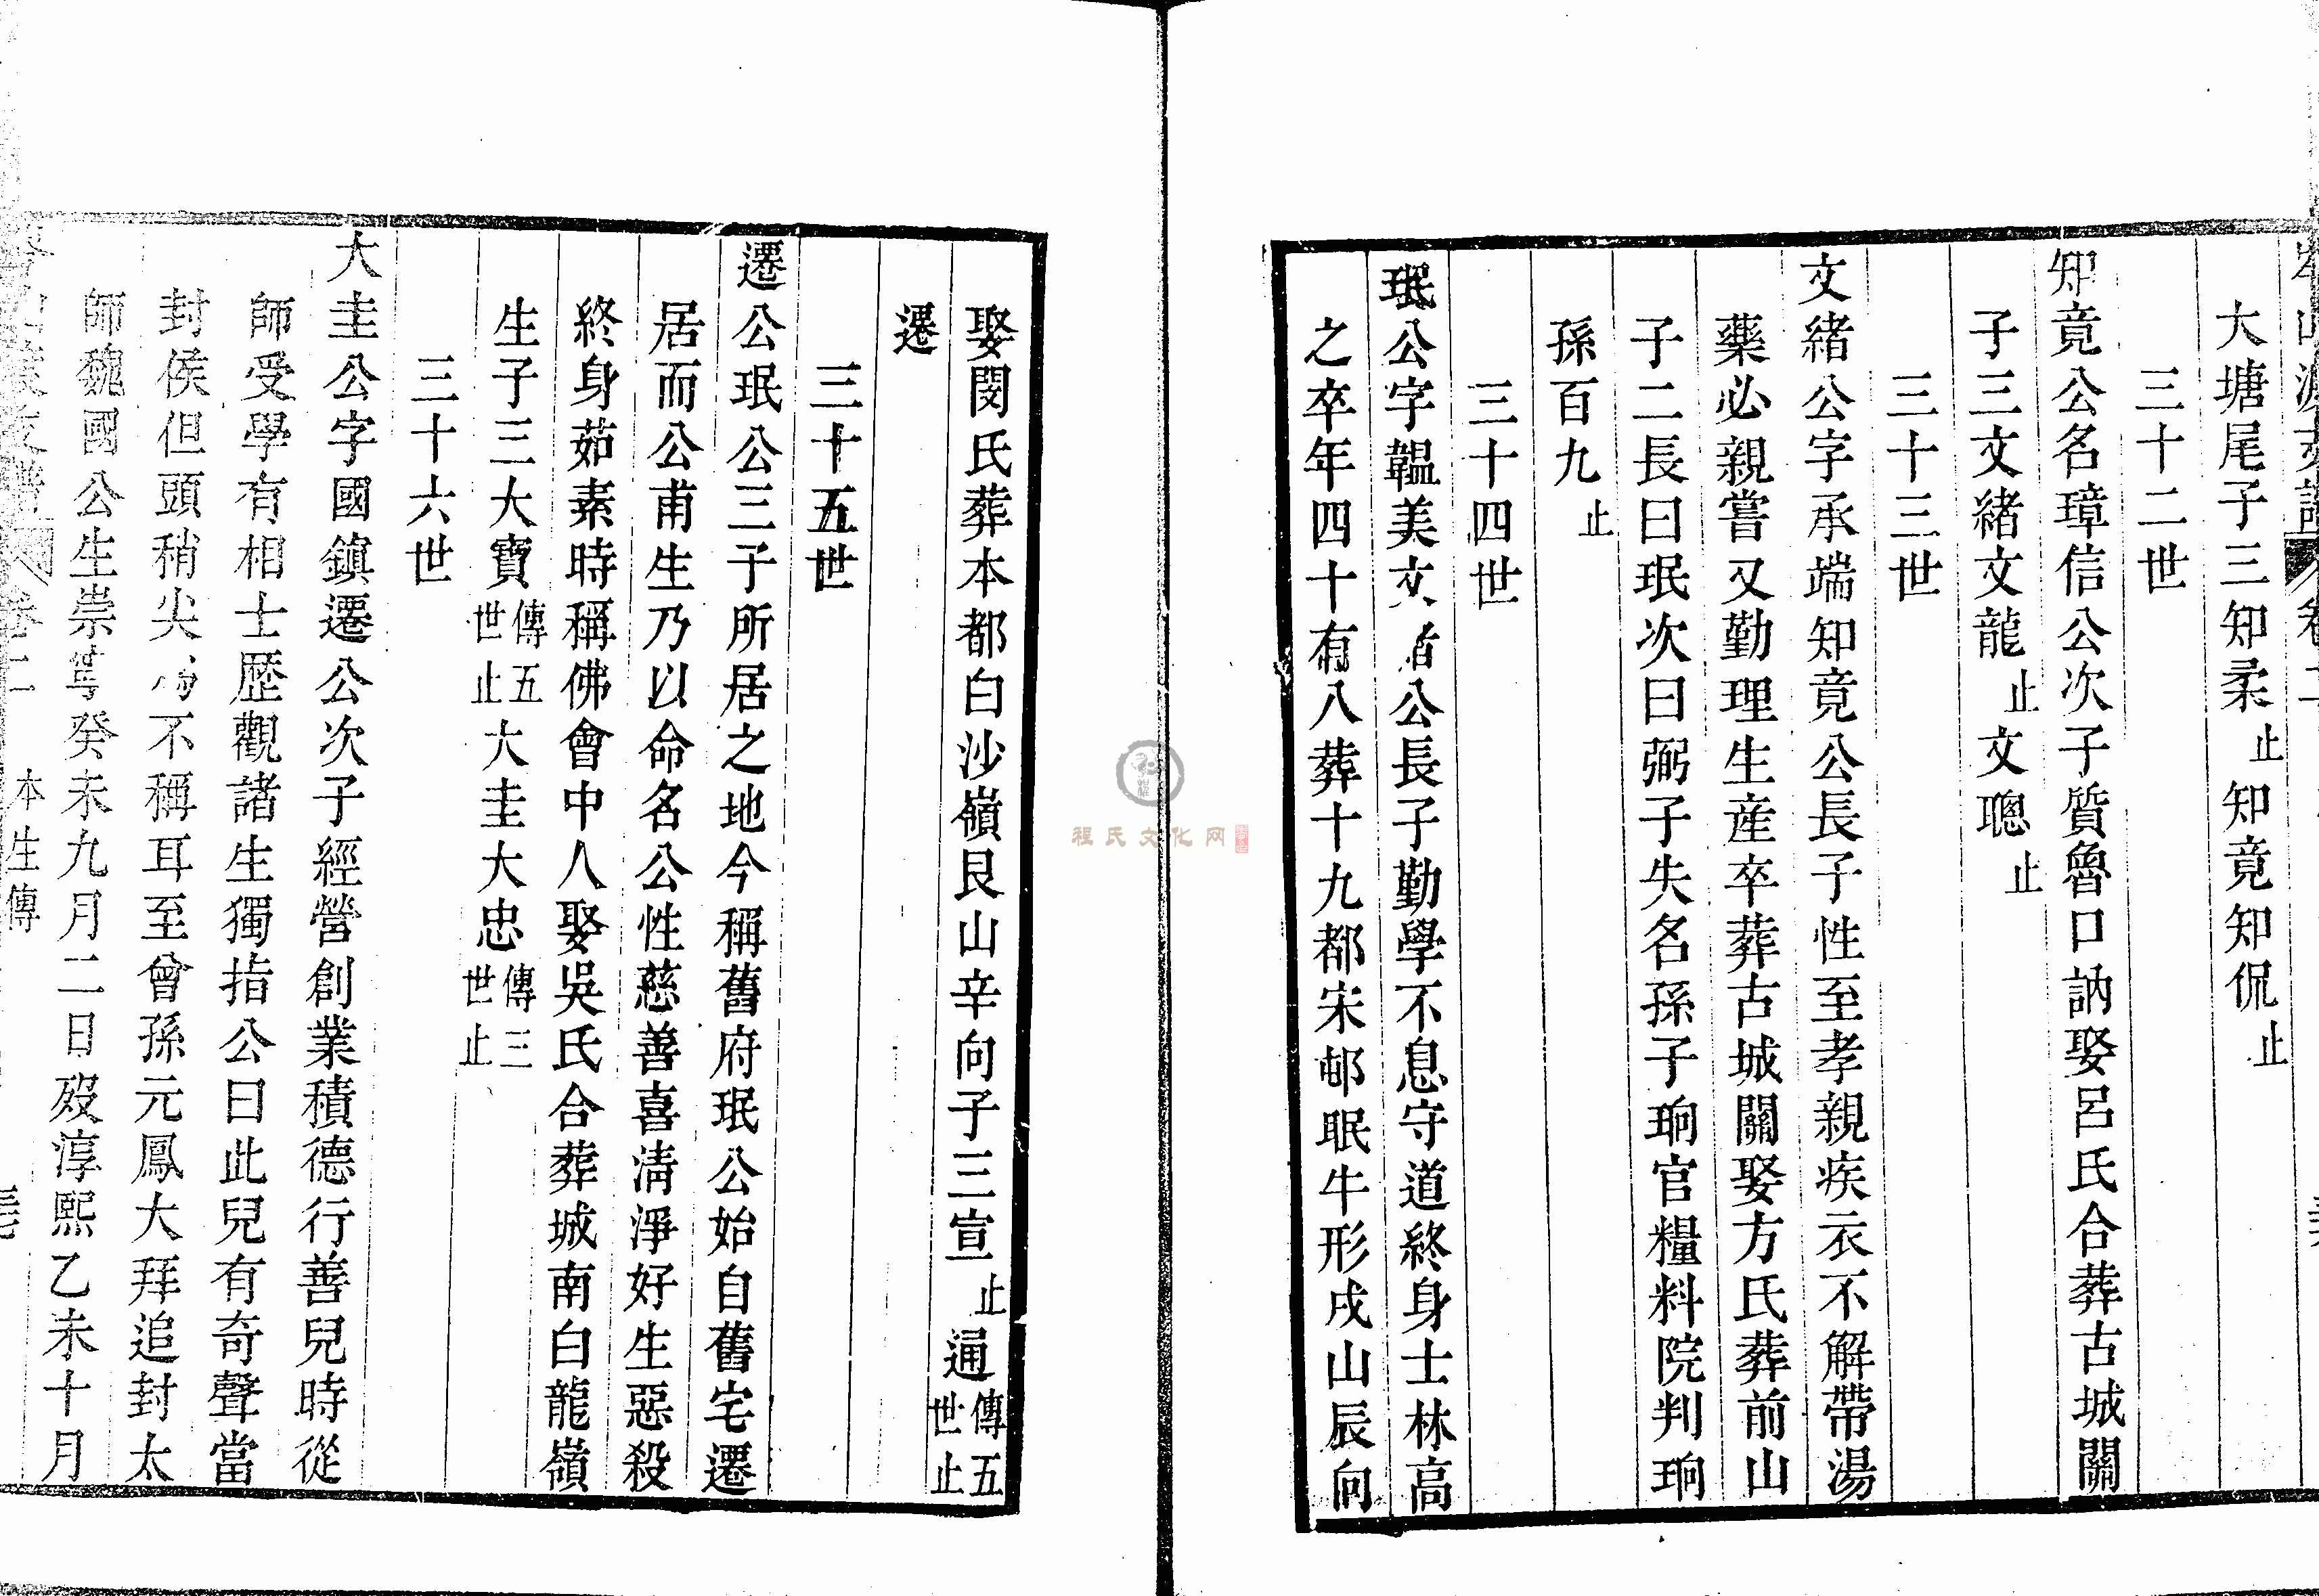 大塘尾子三知柔止知竟知侃止
三十二世
知竟公名璋信公次子質魯口訥娶呂氏合葬古城關
子三文緒文龍止文聰止
三十三世
文緒公字承端知竟公長子性至孝親疾衣不解帶湯
藥必親嘗又勤理生產卒葬古城關娶方氏葬前山
子二長曰珉次曰弼子失名孫子珦官糧料院判珦
孫百九止
三十四世
珉公字韞美文緒公長子勤學不息守道終身士林高
之卒年四十有八葬十九都宋邨眠牛形戌山辰向
娶閔氏葬本都白沙嶺艮山辛向子三宣止通傳五世止
遷
三十五世
遷公珉公三子所居之地今稱舊府珉公始自舊宅遷
居而公甫生乃以命名公性慈善喜清淨好生惡殺
終身茹素時稱佛會中人娶吳氏合葬城南白龍嶺
生子三大寶傳五世止大圭大忠傳三世止
三十六世
大圭公字國鎮遷公次子經營創業積德行善兒時從
師受學有相士歷觀諸生獨指公曰此兒有奇聲當
封侯但頭稍尖不稱耳至曾孫元鳳大拜追封太
師魏國公生崇寧癸未九月二日歿淳熙乙未十月
卷二 本生傳
程氏文化网